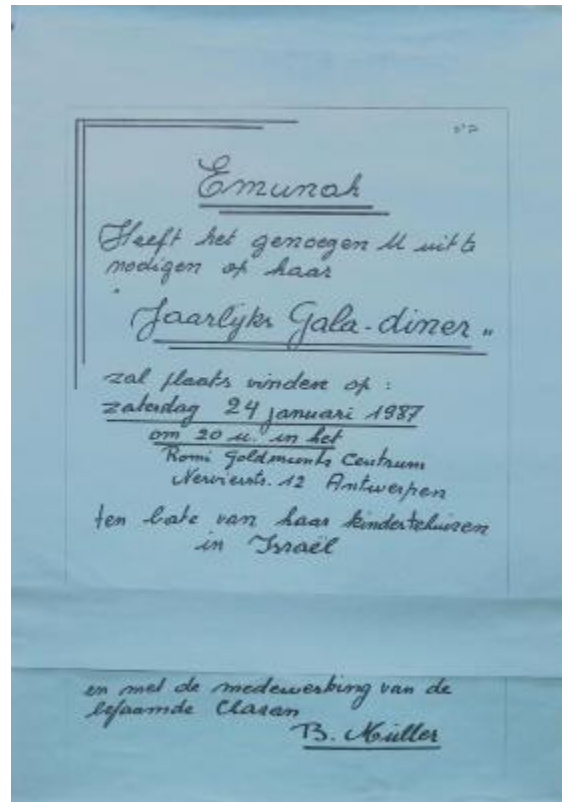 ב"ה
Emunah
Heeft het genoegen U uit te
nodigen op haar
"Jaarlijks Gala-diner"
zal plaats vinden op :
zaterdag 24 januari 1987
om 20 u. in het
Romi Goldmuntz Centrum
Nerviersstr. 12 Antwerpen
ten bate van haar kindertehuizen
in Israël
en met de medewerking van de
befaamde Chazan
B. Müller